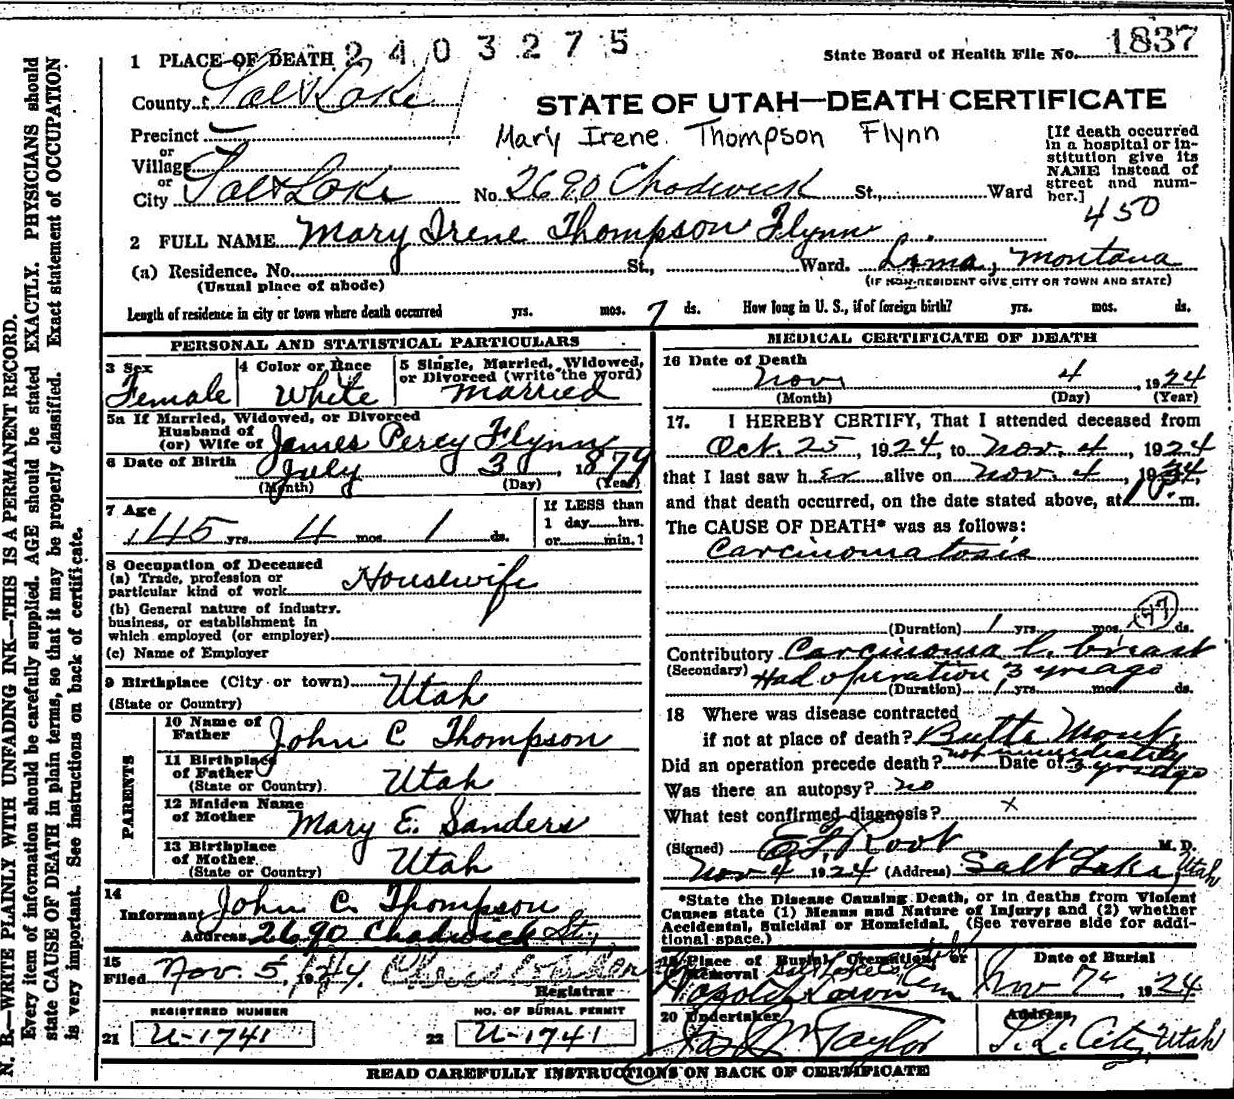 2403275
State Board of Health File No. 1837
1 PLACE OF DEATH
County Salt Lake
STATE OF UTAH—DEATH CERTIFICATE
Mary Irene Thompson Flynn
Precinct
or
Village
or
City Salt Lake No. 2690 Chadwick St., Ward
[If death occurred
in a hospital or in-
stitution give its
NAME instead of
street and num-
ber.]
450
2 FULL NAME Mary Irene Thompson Flynn
(a) Residence. No. St., Ward. Lima, Montana
(Usual place of abode) (IF NON-RESIDENT GIVE CITY OR TOWN AND STATE)
Length of residence in city or town where death occurred yrs. mos. 7 ds. How long in U. S., if of foreign birth? yrs. mos. ds.
PERSONAL AND STATISTICAL PARTICULARS
3 Sex
Female
4 Color or Race
White
5 Single, Married, Widowed,
or Divorced (write the word)
Married
5a If Married, Widowed, or Divorced
Husband of
(or) Wife of James Percy Flynn
6 Date of Birth July 3, 1879
(Month) (Day) (Year)
7 Age
45 yrs. 4 mos. 1 ds.
If LESS than
1 day......hrs.
or......min.?
8 Occupation of Deceased
(a) Trade, profession or
particular kind of work Housewife
(b) General nature of industry.
business, or establishment in
which employed (or employer)
(c) Name of Employer
9 Birthplace (City or town) Utah
(State or Country)
PARENTS
10 Name of
Father John C Thompson
11 Birthplace
of Father Utah
(State or Country)
12 Maiden Name
of Mother Mary E. Sanders
13 Birthplace
of Mother Utah
(State or Country)
14
Informant John C. Thompson
Address 2690 Chadwick St,
15
Filed Nov. 5, 1924.
Registrar
REGISTERED NUMBER
21 U-1741
NO. OF BURIAL PERMIT
22 U-1741
MEDICAL CERTIFICATE OF DEATH
16 Date of Death
Nov 4, 1924
(Month) (Day) (Year)
17. I HEREBY CERTIFY, That I attended deceased from
Oct. 25, 1924, to Nov. 4, 1924
that I last saw her alive on Nov. 4, 1924,
and that death occurred, on the date stated above, at m.
The CAUSE OF DEATH* was as follows:
Carcinomatosis
47
(Duration) 1 yrs. mos. ds.
Contributory Carcinoma l. breast
(Secondary) Had operation 3 yrs ago
(Duration) 1 yrs. mos. ds.
18 Where was disease contracted
if not at place of death? Butte Mont.
not immediately
Did an operation precede death? Date of 3 yrs ago
Was there an autopsy? no
What test confirmed diagnosis? x
(Signed) E F Root M. D.
Nov 4 1924 (Address) Salt Lake Utah
*State the Disease Causing Death, or in deaths from Violent
Causes state (1) Means and Nature of Injury; and (2) whether
Accidental, Suicidal or Homicidal. (See reverse side for addi-
tional space.)
19 Place of Burial, Cremation, or
Removal Salt Lake
Lawn Cem
Date of Burial
Nov 7, 1924
20 Undertaker
Taylor
Address,
S. L. City, Utah
READ CAREFULLY INSTRUCTIONS ON BACK OF CERTIFICATE
N. B.—WRITE PLAINLY WITH UNFADING INK—THIS IS A PERMANENT RECORD.
Every item of information should be carefully supplied. AGE should be stated EXACTLY. PHYSICIANS should
state CAUSE OF DEATH in plain terms, so that it may be properly classified. Exact statement of OCCUPATION
is very important. See instructions on back of certificate.